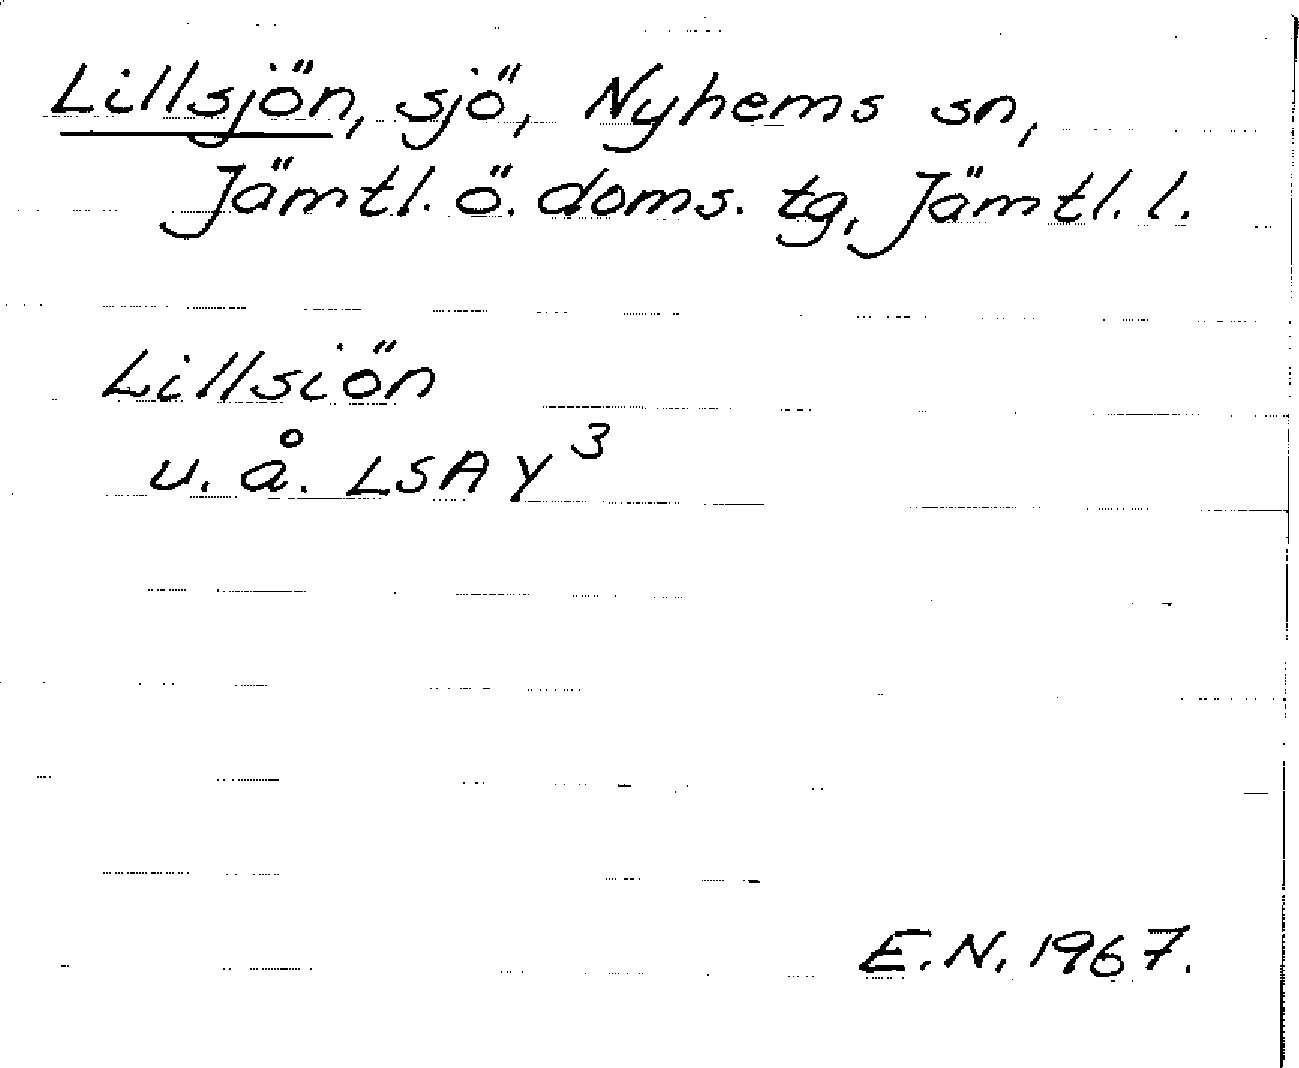 Lillsjön, sjö, Nyhems sn,
Jämtl. ö. doms. tg, Jämtl. l.
Lillsiön
u. å. LSA Y³
E.N. 1967.